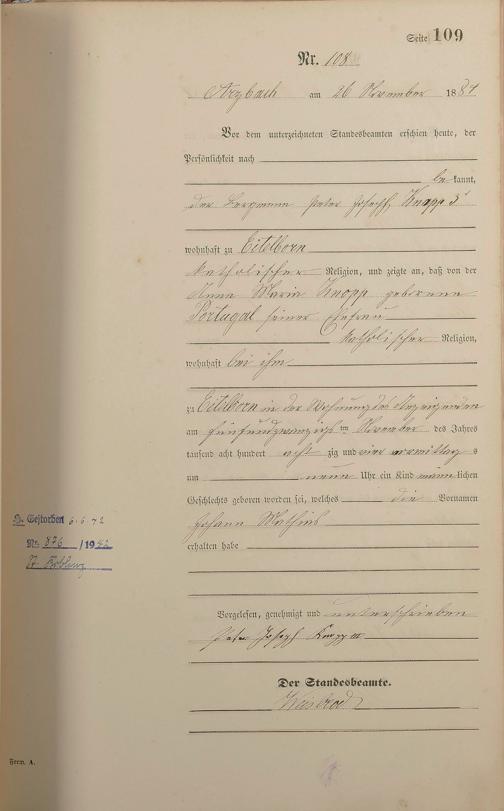 Seite 109
Nr. 108
Arzbach am 26 November 1884
Vor dem unterzeichneten Standesbeamten erschien heute, der
Persönlichkeit nach
be kannt,
der Bergmann Peter Joseph Knopp 3
wohnhaft zu Eitelborn
katholischer Religion, und zeigte an, daß von der
Anna Maria Knopp geborene
Portugal seiner Ehefrau
katholischer Religion,
wohnhaft bei ihm
zu Eitelborn in der Wohnung des Anzeigenden
am fünfundzwanzigs ten November des Jahres
tausend acht hundert acht zig und vier vormittag s
um neun Uhr ein Kind männ lichen
Geschlechts geboren worden sei, welches die Vornamen
Johann Mathias
erhalten habe
Gestorben 6.6.42
Nr. 876 /1942
St. Koblenz
Vorgelesen, genehmigt und unterschrieben
Peter Joseph Knopp III
Der Standesbeamte.
Form. A.